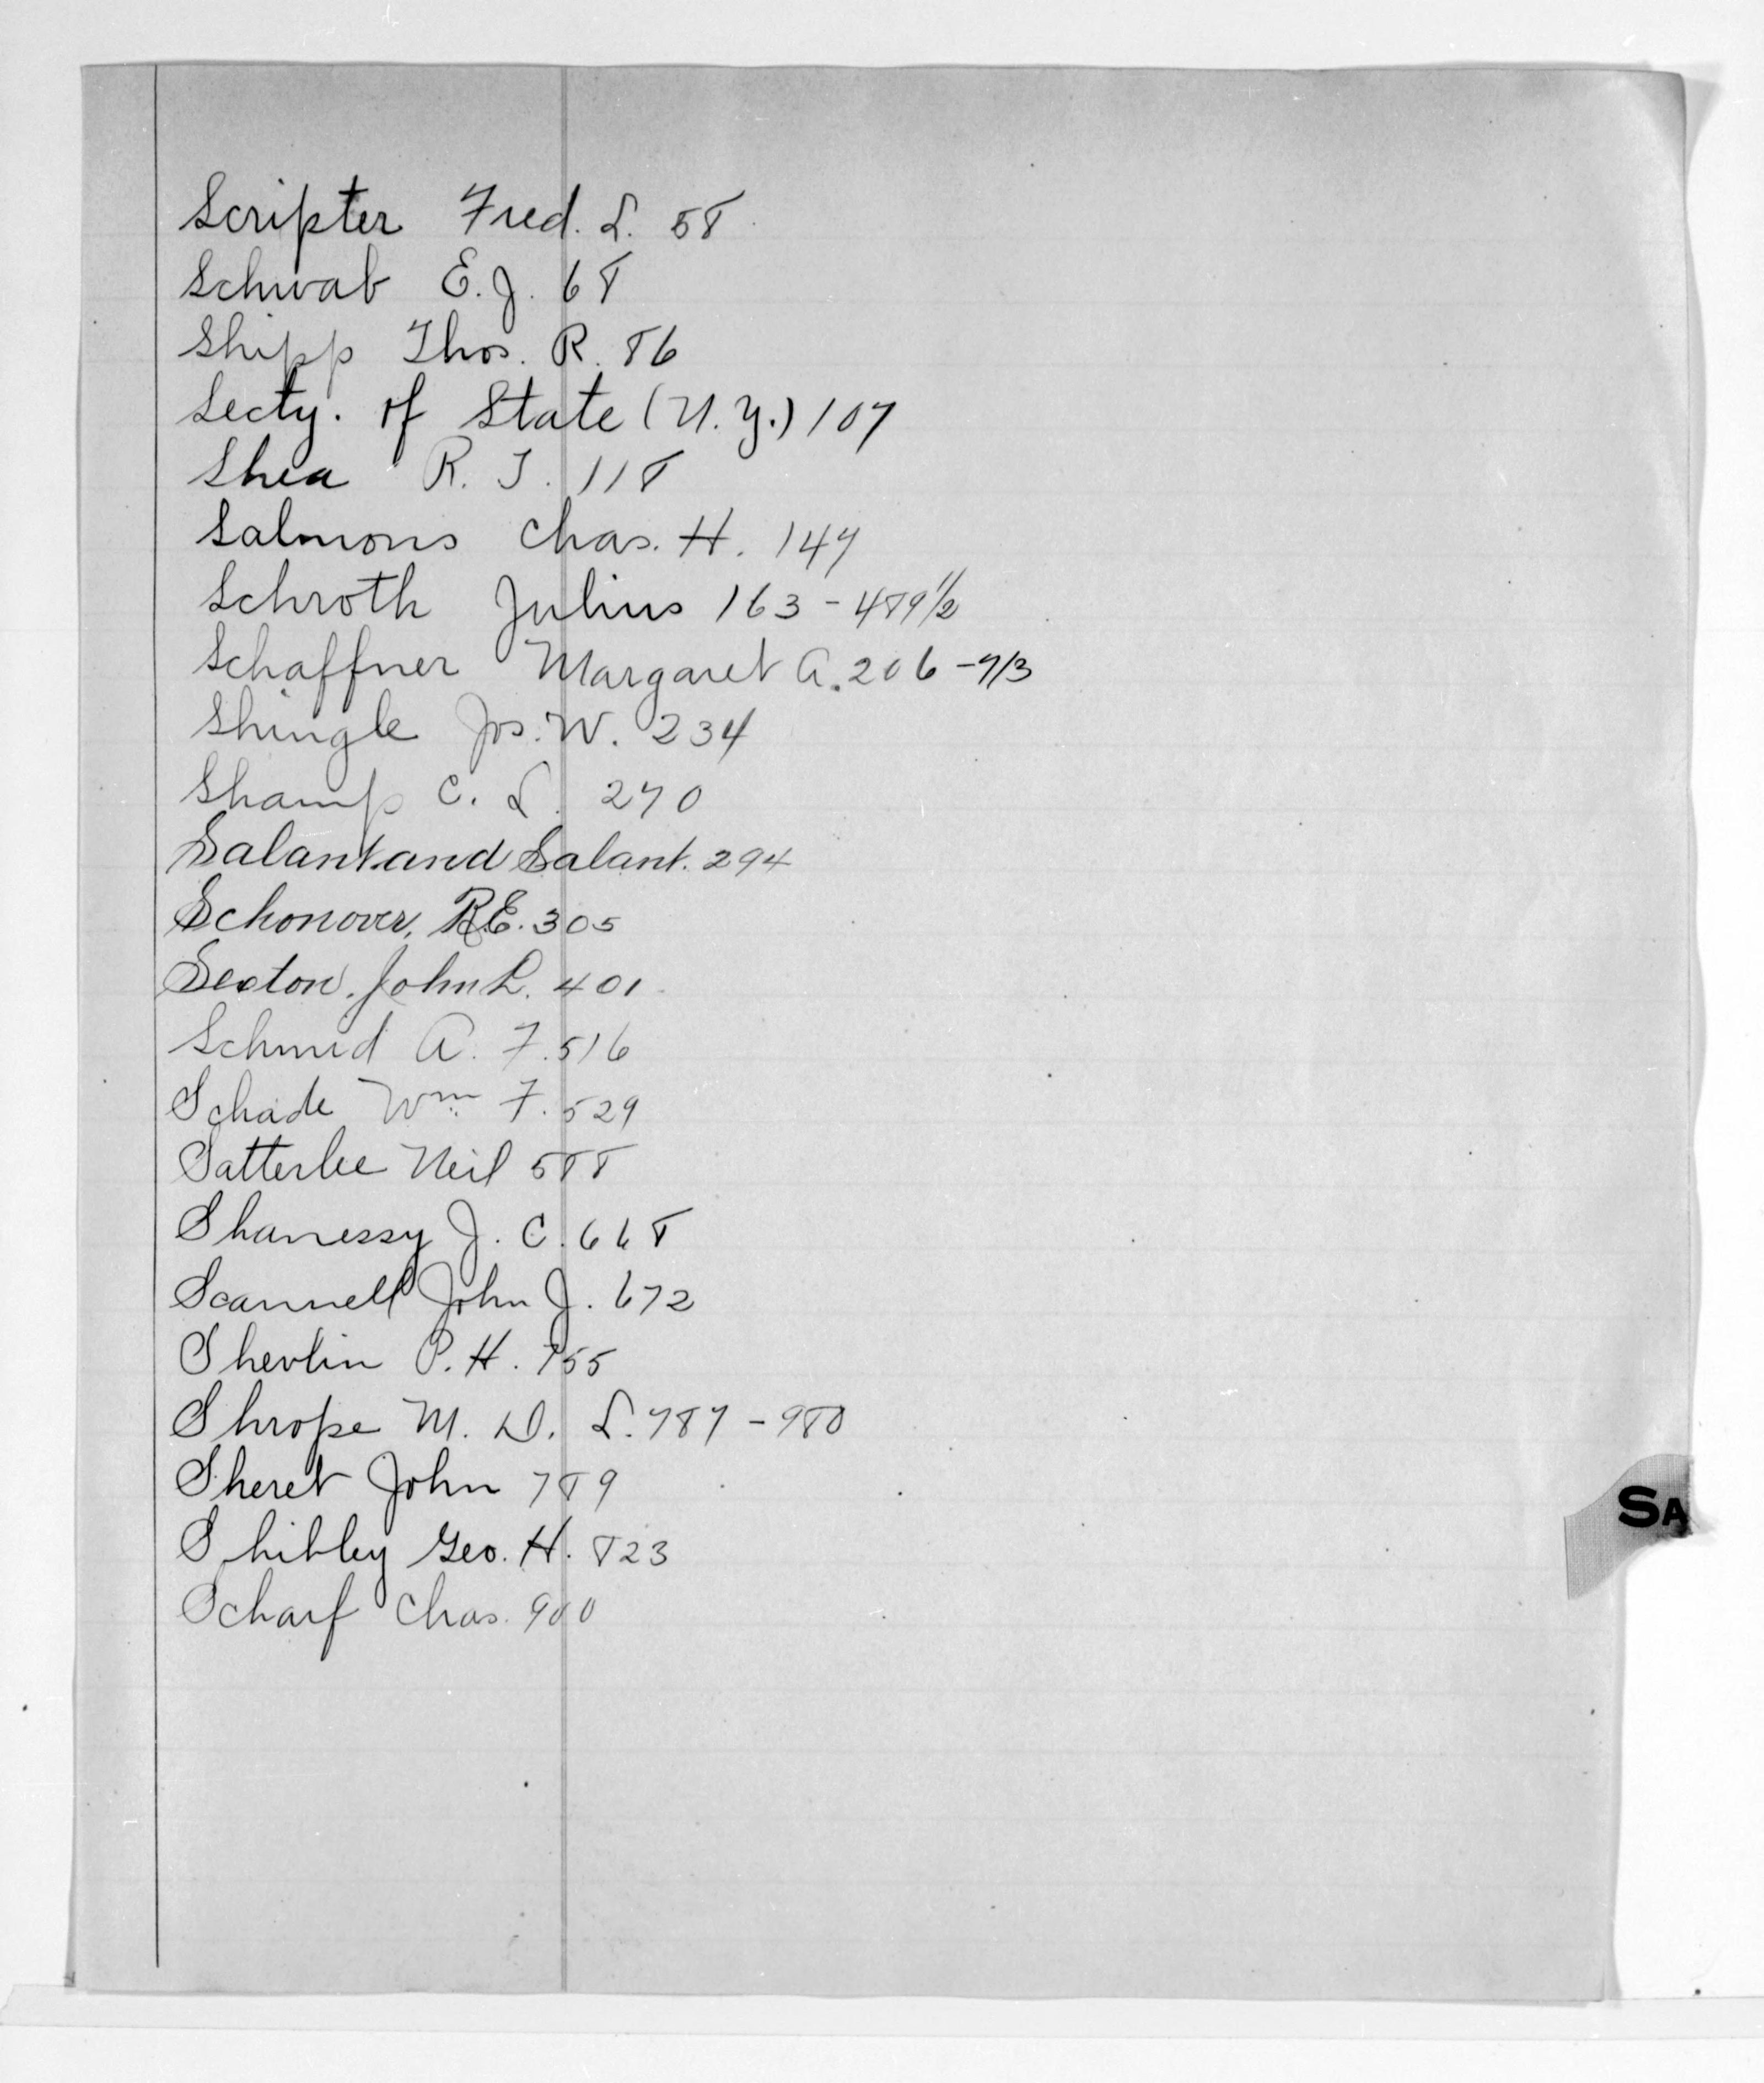 Scripter Fred. L. 58
Schwab E. J. 68
Shipp Thos. R. 86
Secty. of State (N. Y.) 107
Shea R. J. 118
Salmons Chas. H. 147
Schroth Julius 163 - 489 1/2
Schaffner Margaret A. 206 - 713
Shingle Jos. W. 234
Shamp C. L. 270
Salant and Salant. 294
Schonover, R.E. 305
Sexton. John L. 401
Schmid A. F. 516
Schade Wm. F. 529
Satterlee Neil 588
Shanessy J. C. 668
Scannell John J. 672
Shevlin P. H. 755
Shrope M. D. L. 787 - 980
Sheret John 789
Shibley Geo. H. 823
Scharf Chas. 900
SA